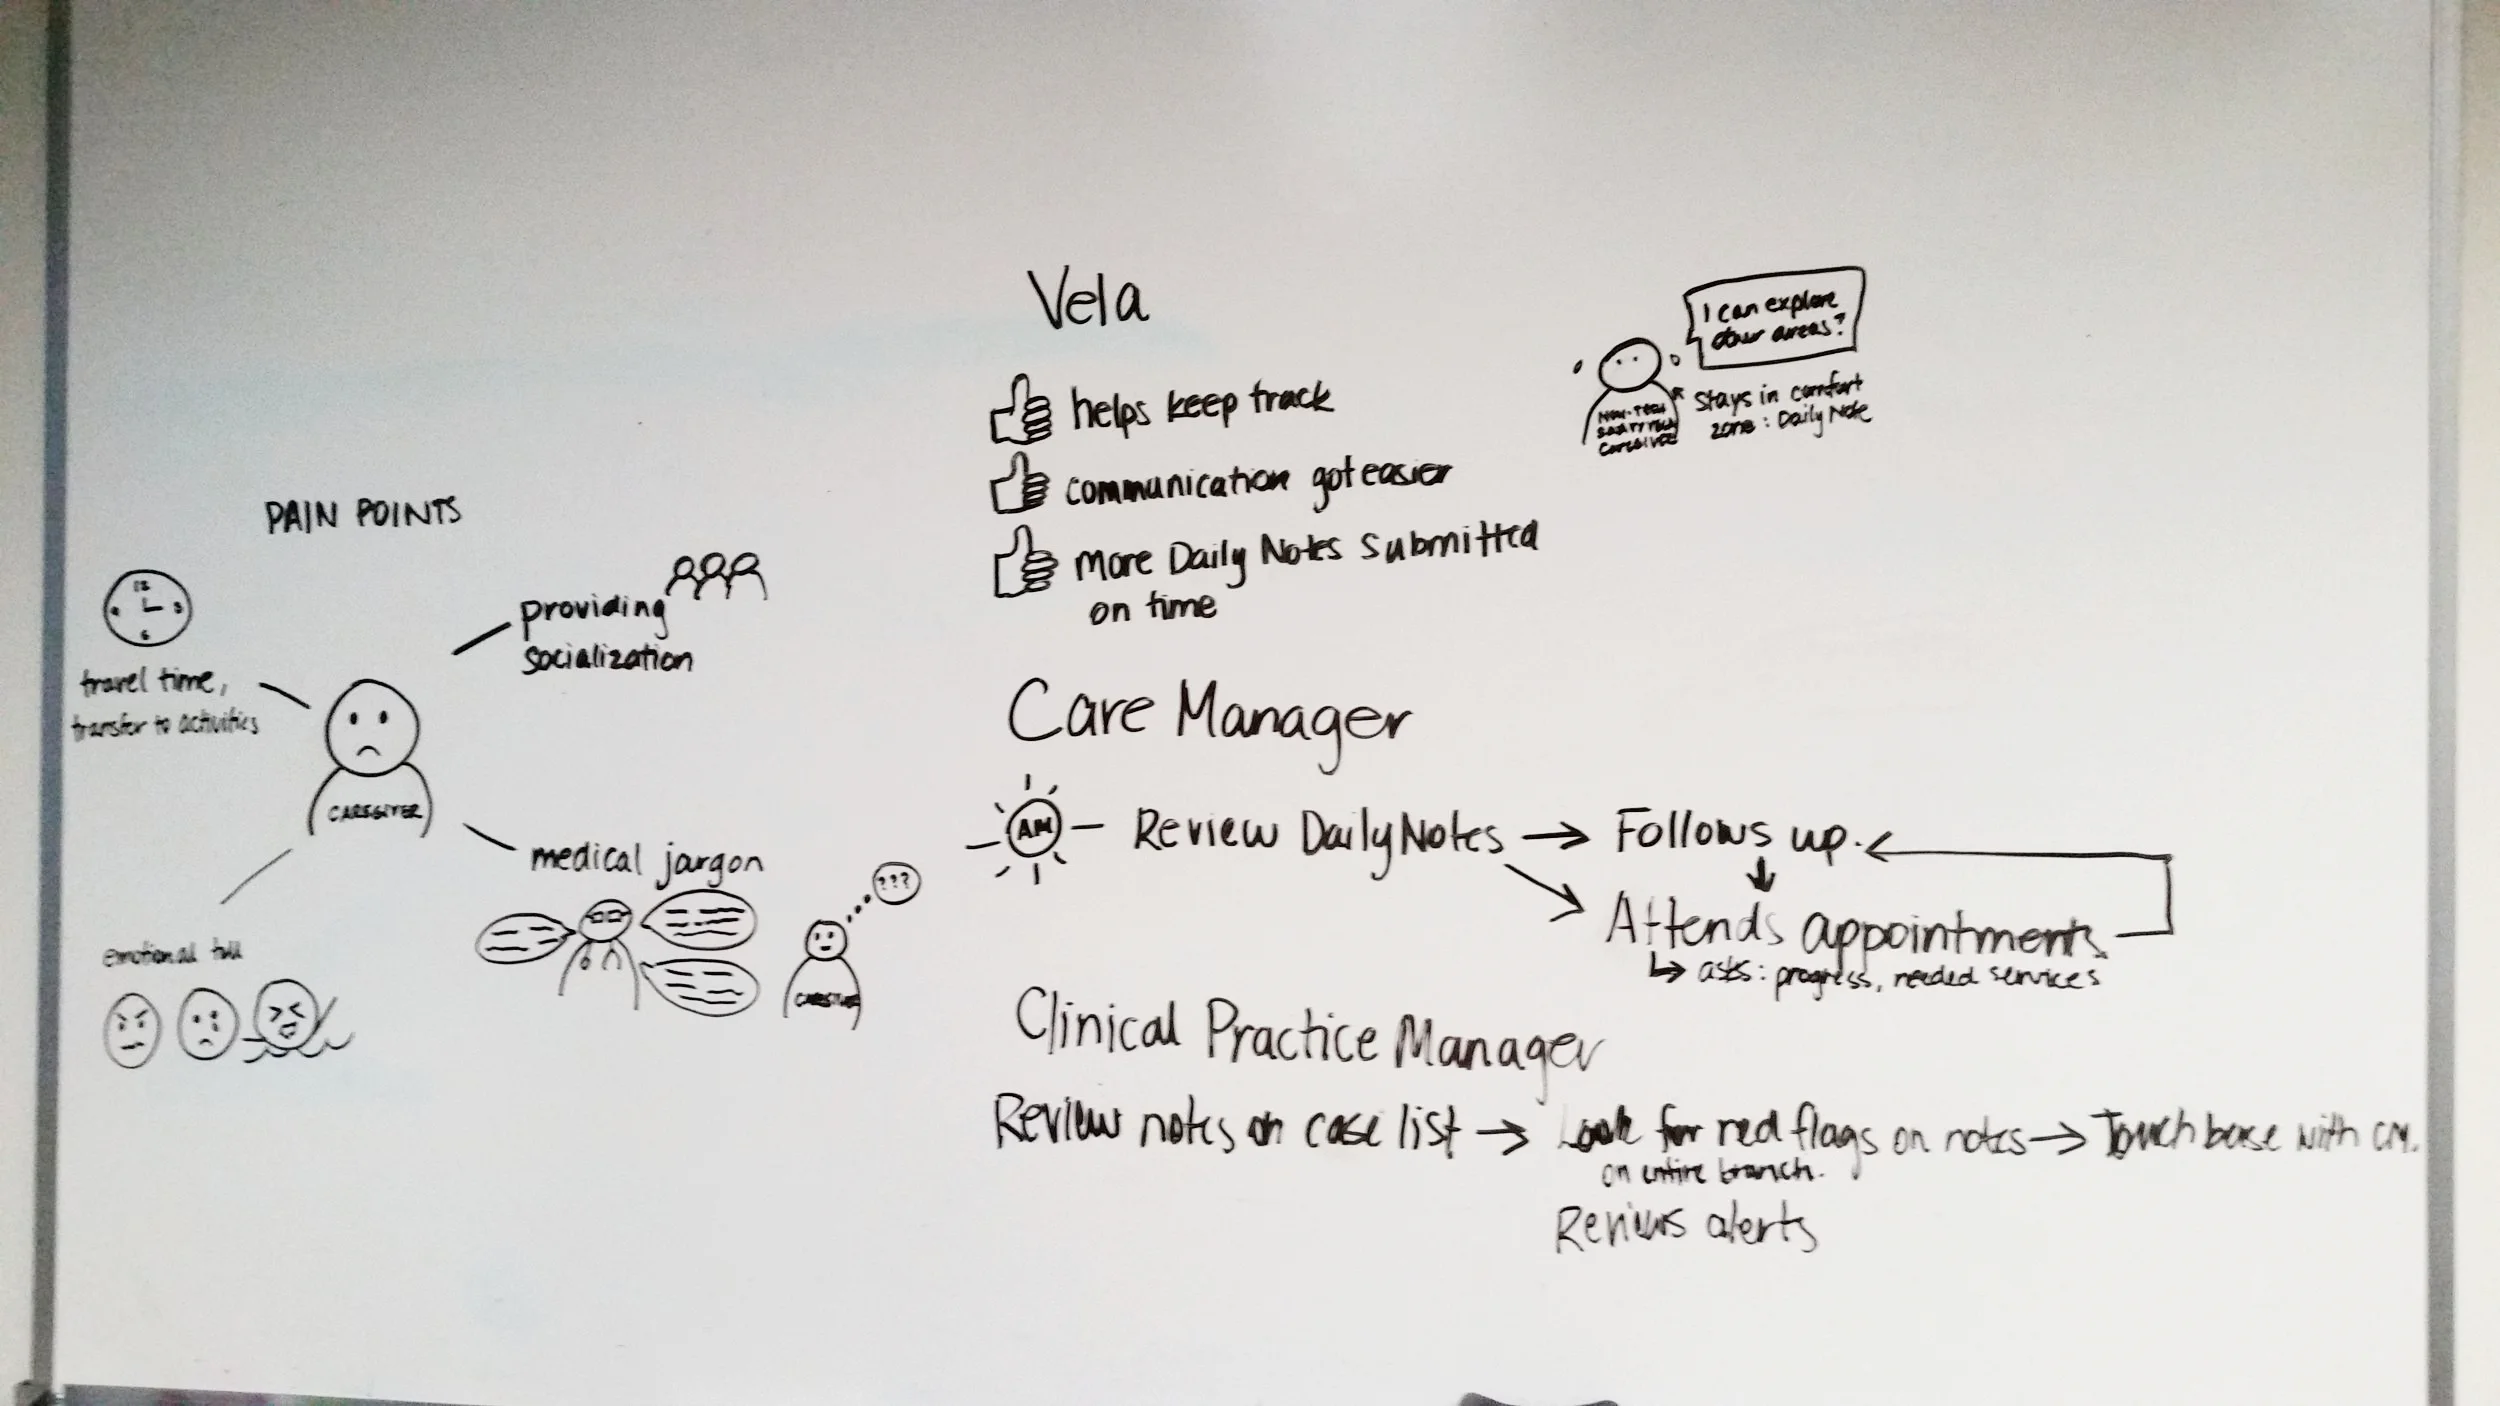 PAIN POINTS
12
3
6
travel time,
transfer to activities
providing
socialization
CAREGIVER
medical jargon
???
CAREGIVER
emotional toll
Vela
helps keep track
communication got easier
more Daily Notes submitted
on time
I can explore
other areas?
NON-TECH
SAVVY
CAREGIVER
stays in comfort
zone: Daily Note
Care Manager
AM
Review Daily Notes → Follows up.
Attends appointments
↳ asks: progress, needed services
Clinical Practice Manager
Review notes on case list → Look for red flags on notes → Touch base with CM.
on entire branch.
Reviews alerts